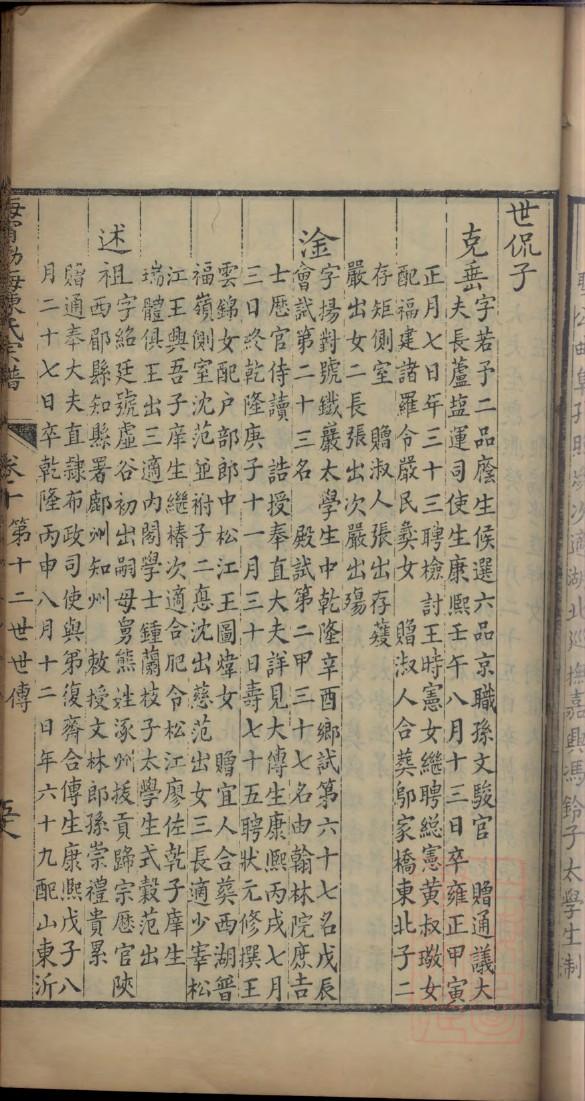 世侃子
克壵
字若予二品廕生候選六品京職孫文駿官　贈通議大
夫長蘆塩運司使生康熙壬午八月十三日卒雍正甲寅
正月七日年三十三聘檢討王時憲女繼聘總憲黄叔璥女
配福建諸羅令嚴民彜女　贈淑人合葬鄔家橋東北子二
存矩側室　贈淑人張出存蒦
嚴出女二長張出次嚴出殤
淦
字揚對號鐵巖太學生中乾隆辛酉鄉試第六十七名戊辰
會試第二十三名　殿試第二甲三十七名由翰林院庶吉
士歷官侍讀　誥授奉直大夫詳見大傳生康熙丙戌七月
三日終乾隆庚子十一月三十日壽七十五聘狀元修撰王
雲錦女配户部郎中松江王圖煒女　贈宜人合葬西湖普
福嶺側室沈范並祔子二悳沈出慈范出女三長適少宰松
江王興吾子庠生繼椿次適合肥令松江廖佐乾子庠生
瑞體俱王出三適内閣學士鍾蘭枝子太學生式穀范出
述
祖字紹廷號虛谷初出嗣母舅熊姓涿州援貢歸宗歷官陝
西郿縣知縣署鄜州知州　敕授文林郎孫崇禮貴累
贈通奉大夫直隸布政司使與弟復齋合傳生康熙戊子八
月二十七日卒乾隆丙申八月十二日年六十九配山東沂
海寧渤海陳氏宗譜　卷十第十二世世傳